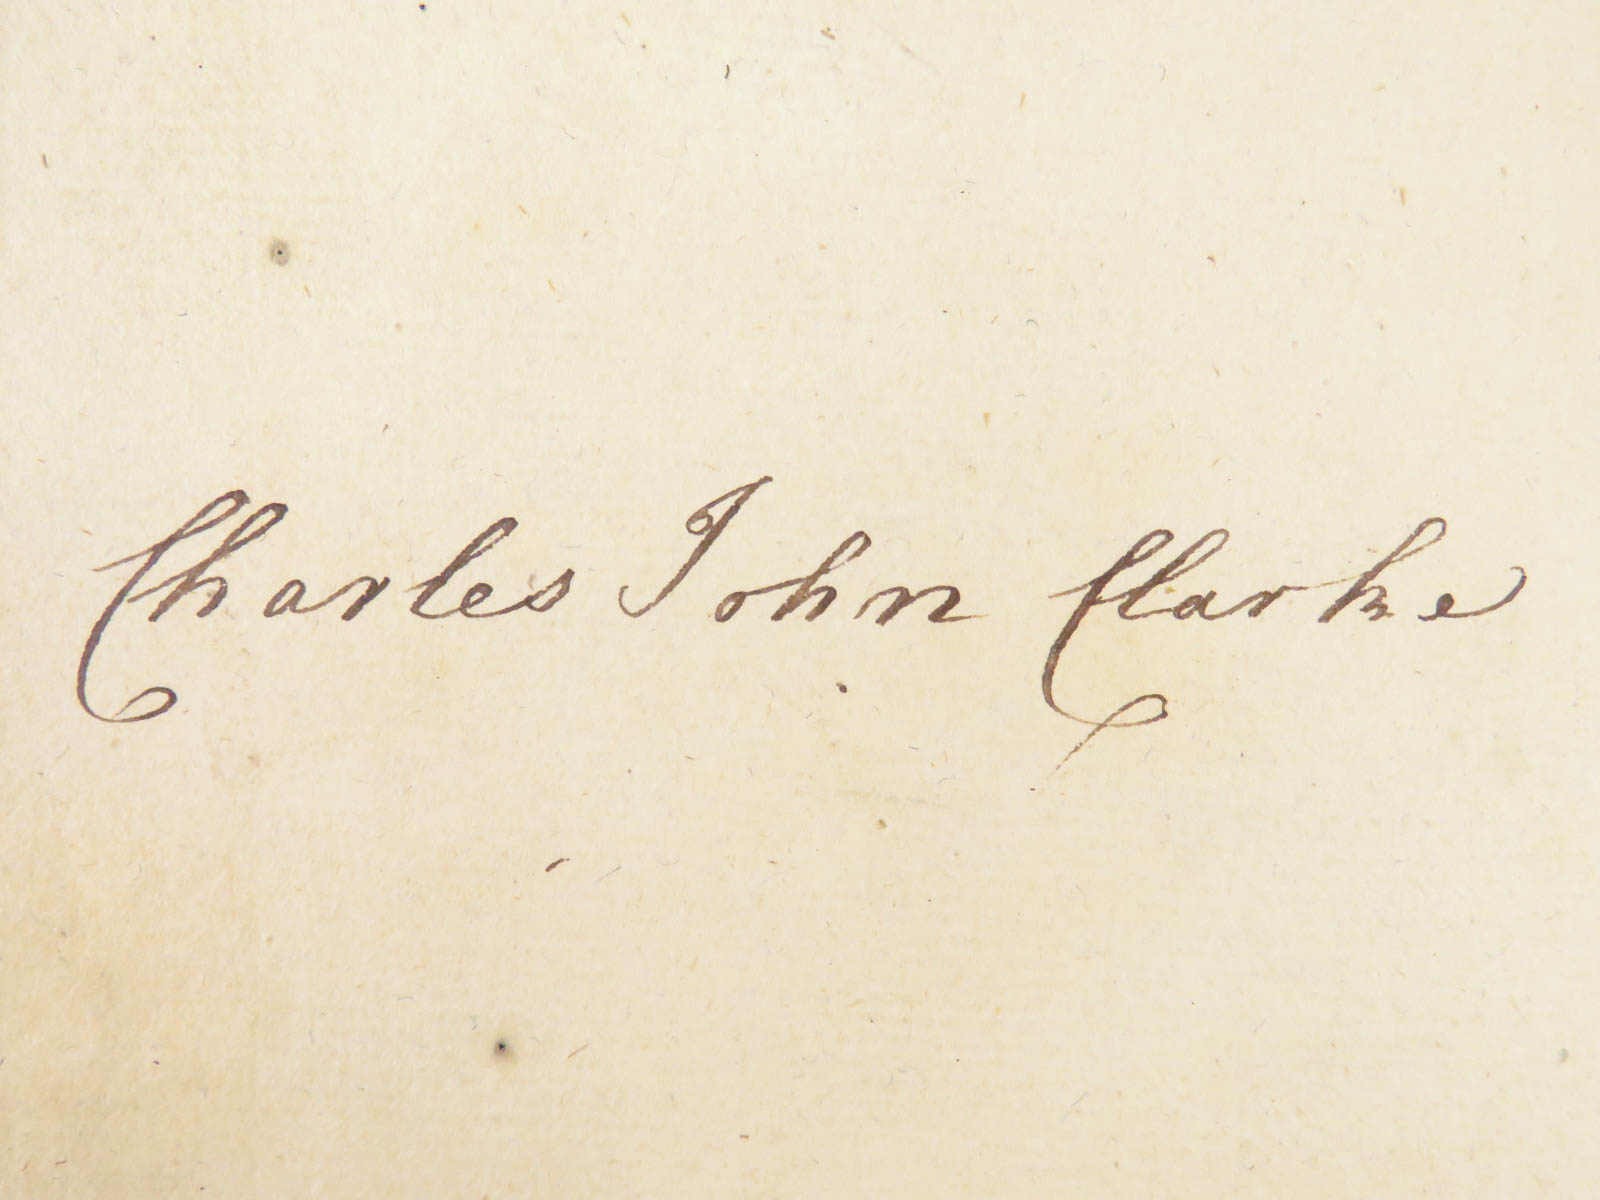 Charles John Clarke